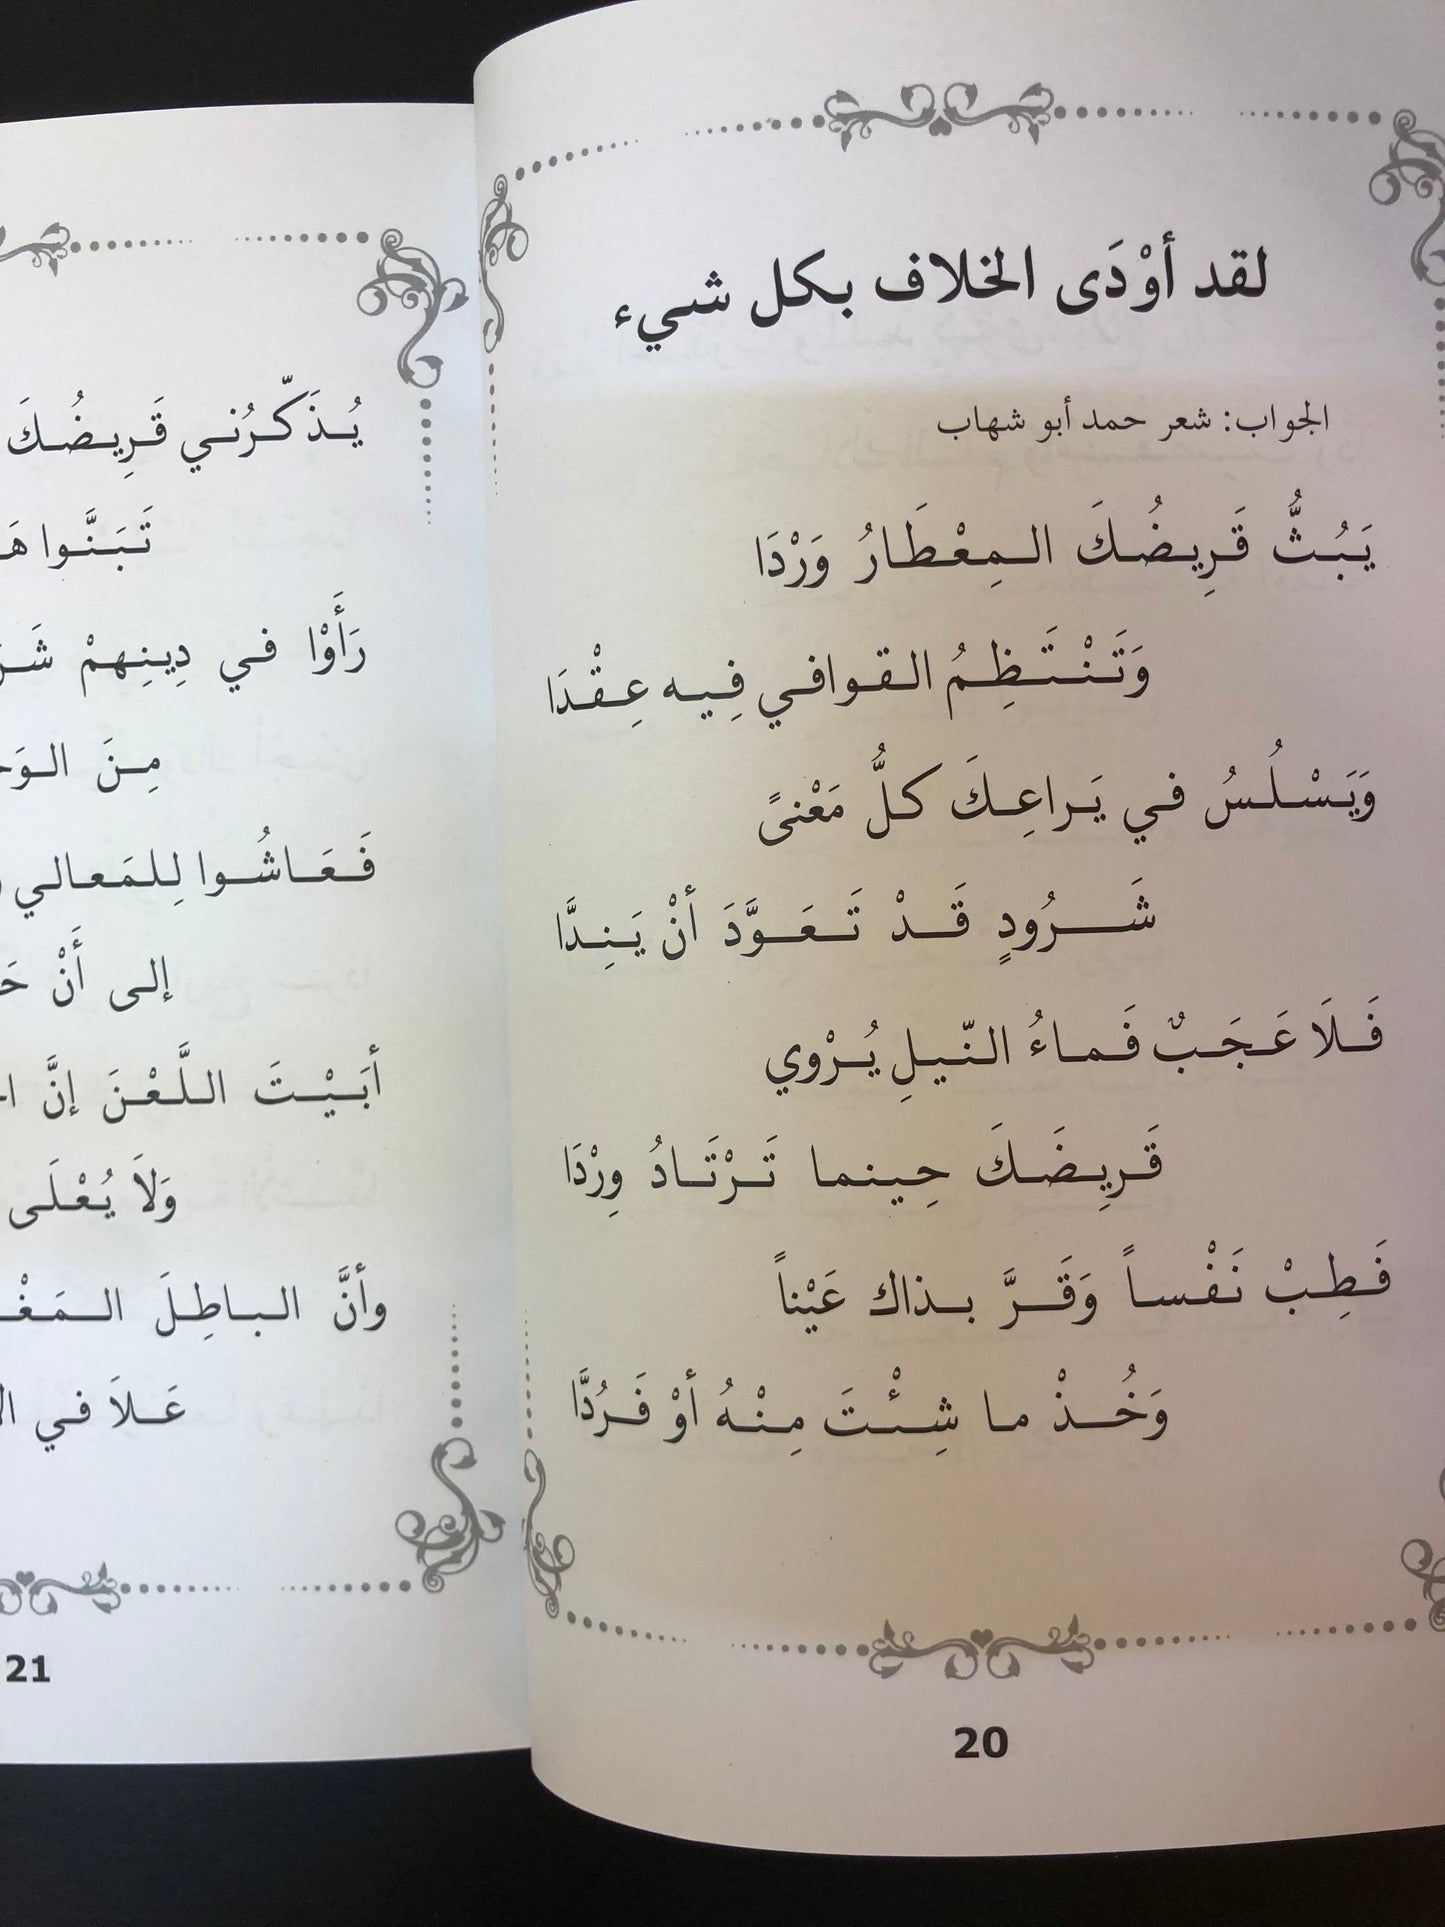 لقد أوْدَى الخلاف بكل شيء
الجواب: شعر حمد أبو شهاب
يَبُثُّ قَرِيضُكَ المِعْطَارُ وَرْدَا
وَتَنْتَظِمُ القوافي فِيه عِقْدَا
وَيَسْلُسُ في يَراعِكَ كلُّ مَعْنىً
شَرُودٍ قَدْ تَعَوَّدَ أنْ يَنِدَّا
فَلَا عَجَبٌ فَماءُ النّيلِ يُرْوي
قَرِيضَكَ حِينما تَرْتَادُ وِرْدَا
فَطِبْ نَفْساً وَقَرَّ بذاك عَيْناً
وَخُذْ ما شِئْتَ مِنْهُ أوْ فَرُدَّا
20
يُذَكّرُني قَرِيضُكَ
تَبَنَّوا
رَأَوْا في دِينِهمْ
مِنَ
فَعَاشُوا لِلمَعالي
إلى أَنْ
أبَيْتَ اللَّعْنَ إنَّ
وَلاَ يُعْلَى
وأنَّ الباطِلَ
عَلاَ في
21